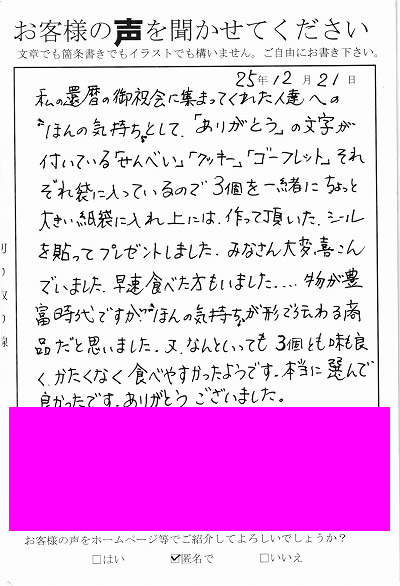 お客様の声を聞かせてください
文章でも箇条書きでもイラストでも構いません。ご自由にお書き下さい。
25年12月21日
私の還暦の御祝会に集まってくれた人達への
"ほんの気持ち"として、「ありがとう」の文字が
付いている「せんべい」「クッキー」「ゴーフレット」それ
ぞれ袋に入っているので3個を一緒にちょっと
大きい紙袋に入れ上には、作って頂いた、シール
を貼ってプレゼントしました、みなさん大変、喜こん
でいました、早速食べた方もいました....物が豊
富時代ですが"ほんの気持ち"が形で伝わる商
品だと思いました。又、なんといっても3個とも味も良
く、かたくなく食べやすかったようです。本当に選んで
良かったです。ありがとうございました。
お客様の声をホームページ等でご紹介してよろしいでしょうか？
□はい ☑匿名で □いいえ